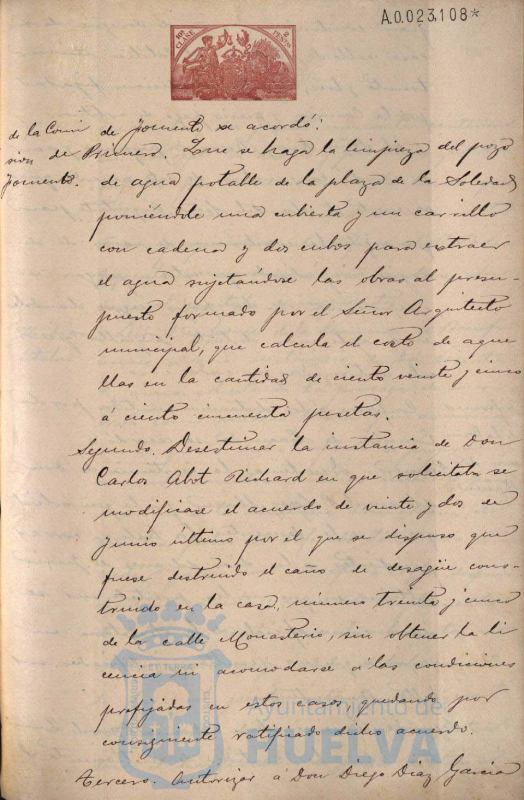 A.0.023,108*
10ª CLASE
2 PESETAS
de la Comi
sion de
Fomento.
de Fomento se acordó:
Primero. Que se haga la limpieza del pozo
de agua potable de la plaza de la Soledad
poniéndole una cubierta y un carrillo
con cadena y dos cubos para extraer
el agua sujetándose las obras al presu-
puesto formado por el Señor Arquitecto
municipal, que calcula el costo de aque
llas en la cantidad de ciento veinte y cinco
á ciento cincuenta pesetas.
Segundo. Desestimar la instancia de Don
Carlos Abot Richard en que solicitaba se
modificase el acuerdo de veinte y dos de
Junio último por el que se dispuso que
fuese destruido el caño de desagüe cons-
truido en la casa, número treinta y cinco
de la calle Monasterio, sin obtener la li
cencia ni acomodarse á las condiciones
prefijadas en estos casos, quedando por
consiguiente ratificado dicho acuerdo.
Tercero. Autorizar a Don Diego Diaz Garcia
Ayuntamiento de
HUELVA